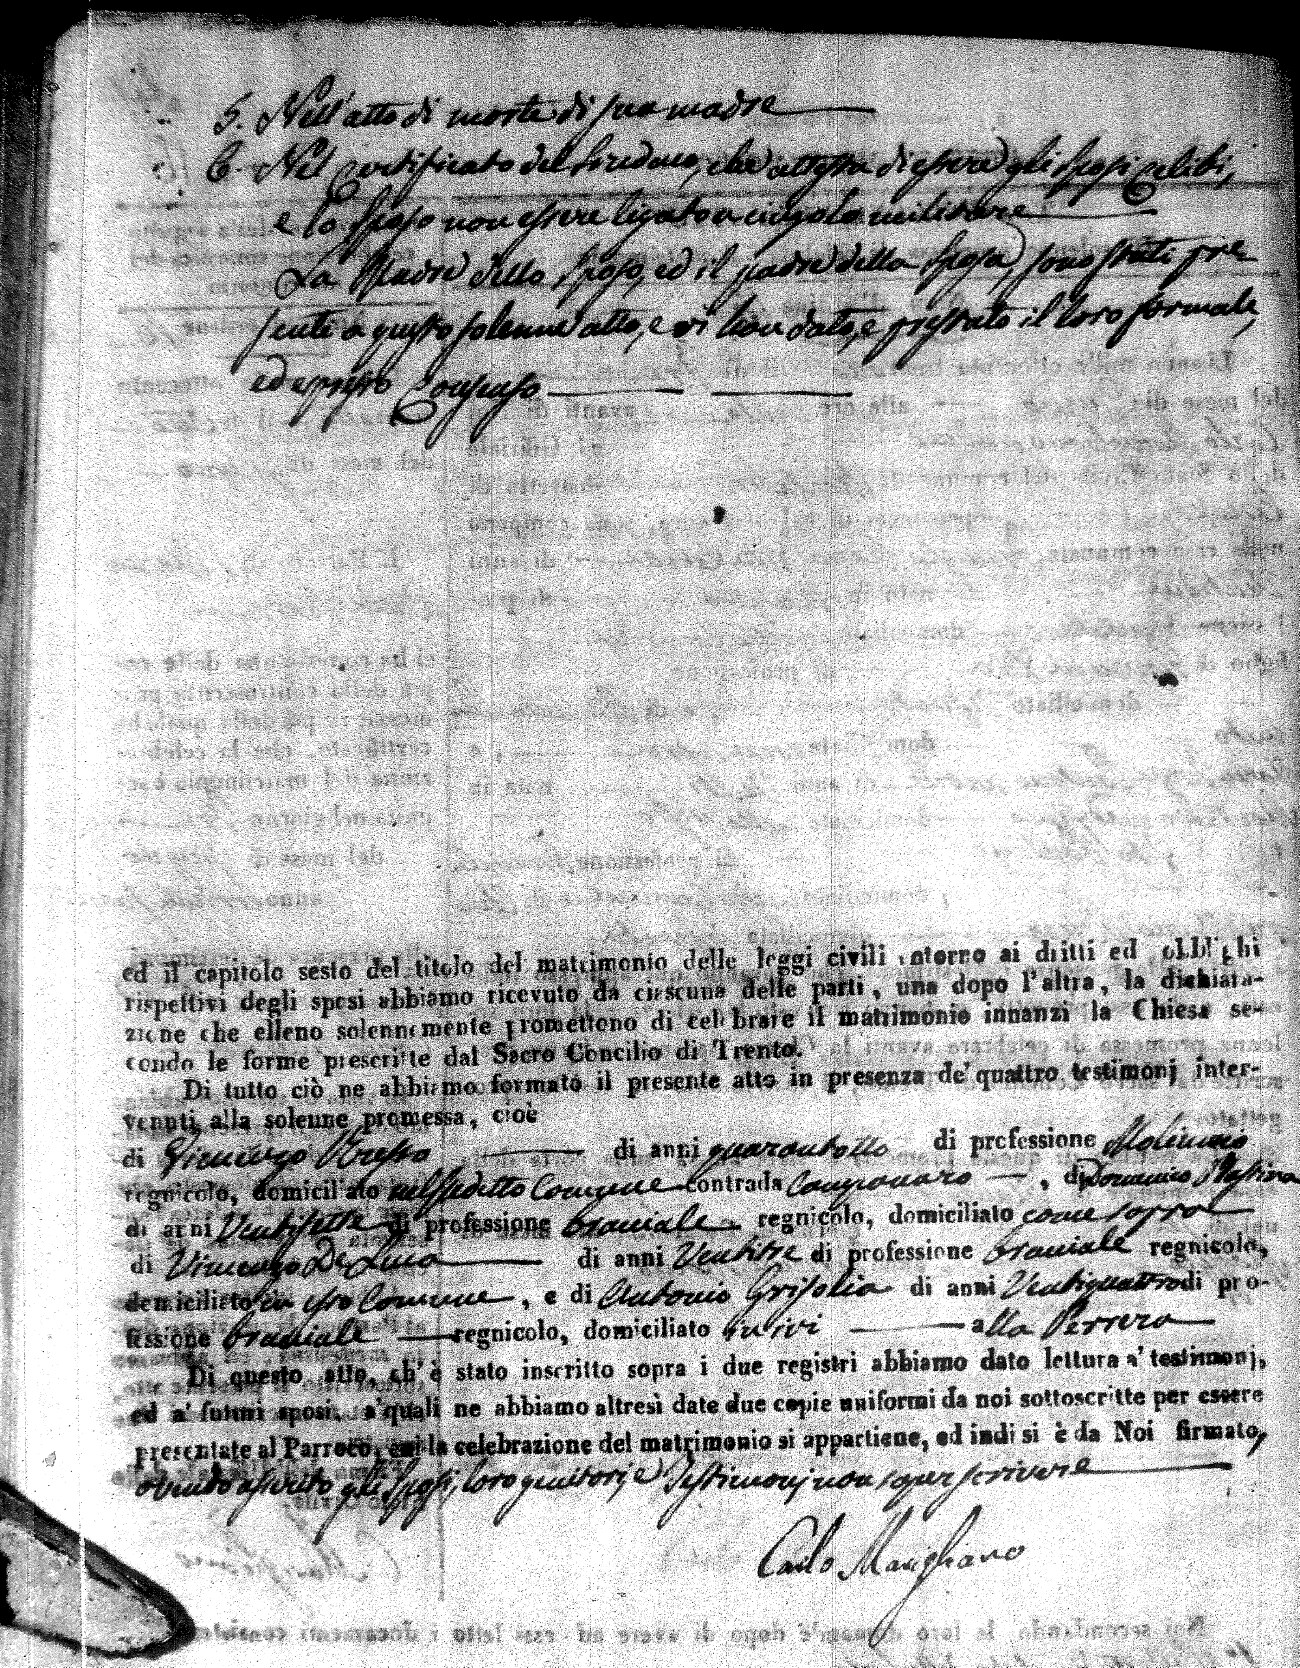 5. Nell'atto di morte di sua madre
6. Nel Certificato del Sindaco, che attesta di essere gli Sposi Celibi,
e lo Sposo non essere ligato a cingolo militare
La Madre dello Sposo, ed il padre della Sposa, sono stati pre
senti a questo solenne atto, e vi han dato, e prestato il loro formale,
ed espresso Consenso
ed il capitolo sesto del titolo del matrimonio delle leggi civili intorno ai dritti ed obblighi
rispettivi degli sposi abbiamo ricevuto da ciascuna delle parti, una dopo l'altra, la dichiara-
zione che elleno solennemente promettono di celebrare il matrimonio innanzi la Chiesa se-
condo le forme prescritte dal Sacro Concilio di Trento.
Di tutto ciò ne abbiamo formato il presente atto in presenza de' quattro testimonj inter-
venuti alla solenne promessa, cioè
di Vincenzo di anni quarantotto di professione Molinaro
regnicolo, domiciliato nel sudetto Comune contrada Campanaro, di Domenico Messina
di anni Ventisette di professione braciale regnicolo, domiciliato come sopra
di Vincenzo De Luca di anni Ventitre di professione braciale regnicolo,
domiciliato in esso Comune, e di Antonio Grisolia di anni Ventiquattro di pro-
fessione braciale regnicolo, domiciliato ivi alla Perrera
Di questo atto, ch'è stato inscritto sopra i due registri abbiamo dato lettura a' testimonj,
ed a' futuri sposi, a' quali ne abbiamo altresì date due copie uniformi da noi sottoscritte per essere
presentate al Parroco, cui la celebrazione del matrimonio si appartiene, ed indi si è da Noi firmato,
avendo asserito gli Sposi, loro genitori, e Testimonj non saper scrivere
Carlo Marigliano